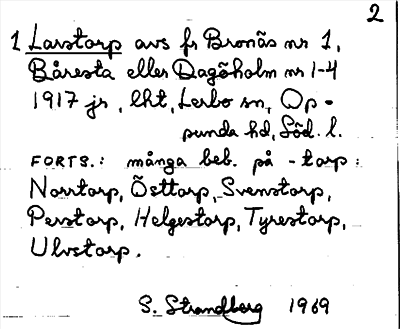 2
1 Larstorp avs fr Bronäs nr 1,
Båresta eller Dagöholm nr 1-4
1917 jr, lht, Lerbo sn, Op-
punda hd, Söd. l.
FORTS.: många beb. på -torp:
Norrtorp, Östtorp, Svenstorp,
Perstorp, Helgestorp, Tyrestorp,
Ulvstorp.
S. Strandberg 1969